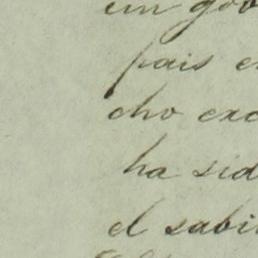 un gob
pais e
cho exc
ha sid
el sabi